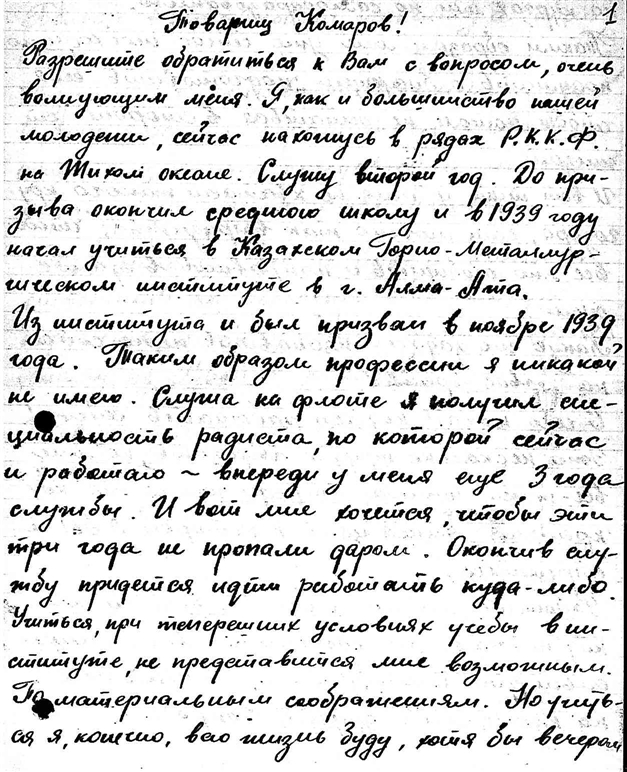 1
Товарищ Комаров!
Разрешите обратиться к Вам с вопросом, очень
волнующим меня. Я, как и большинство нашей
молодежи, сейчас нахожусь в рядах Р.К.К.Ф.
на Тихом океане. Служу второй год. До при-
зыва окончил среднюю школу и в 1939 году
начал учиться в Казахском Горно-Металлур-
гическом институте в г. Алма-Ата.
Из института и был призван в ноябре 1939
года. Таким образом профессии я никакой
не имею. Служа на флоте я получил спе-
циальность радиста, по которой сейчас
и работаю ~ впереди у меня еще 3 года
службы. И вот мне хочется, чтобы эти
три года не пропали даром. Окончив слу-
жбу придется идти работать куда-либо.
Учиться, при теперешних условиях учебы в ин-
ституте, не представится мне возможным.
По материальным соображениям. Но учить-
ся я, конечно, всю жизнь буду, хотя бы вечерам